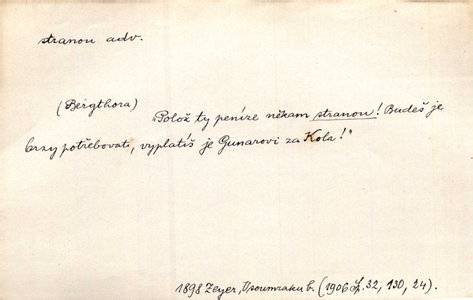 stranou adv.
(Bergthora)
"Polož ty peníze někam stranou! Budeš je
brzy potřebovati, vyplatíš je Gunarovi za Kola!"
1898 Zeyer, V soumraku b. (1906 Sp. 32, 130, 24).